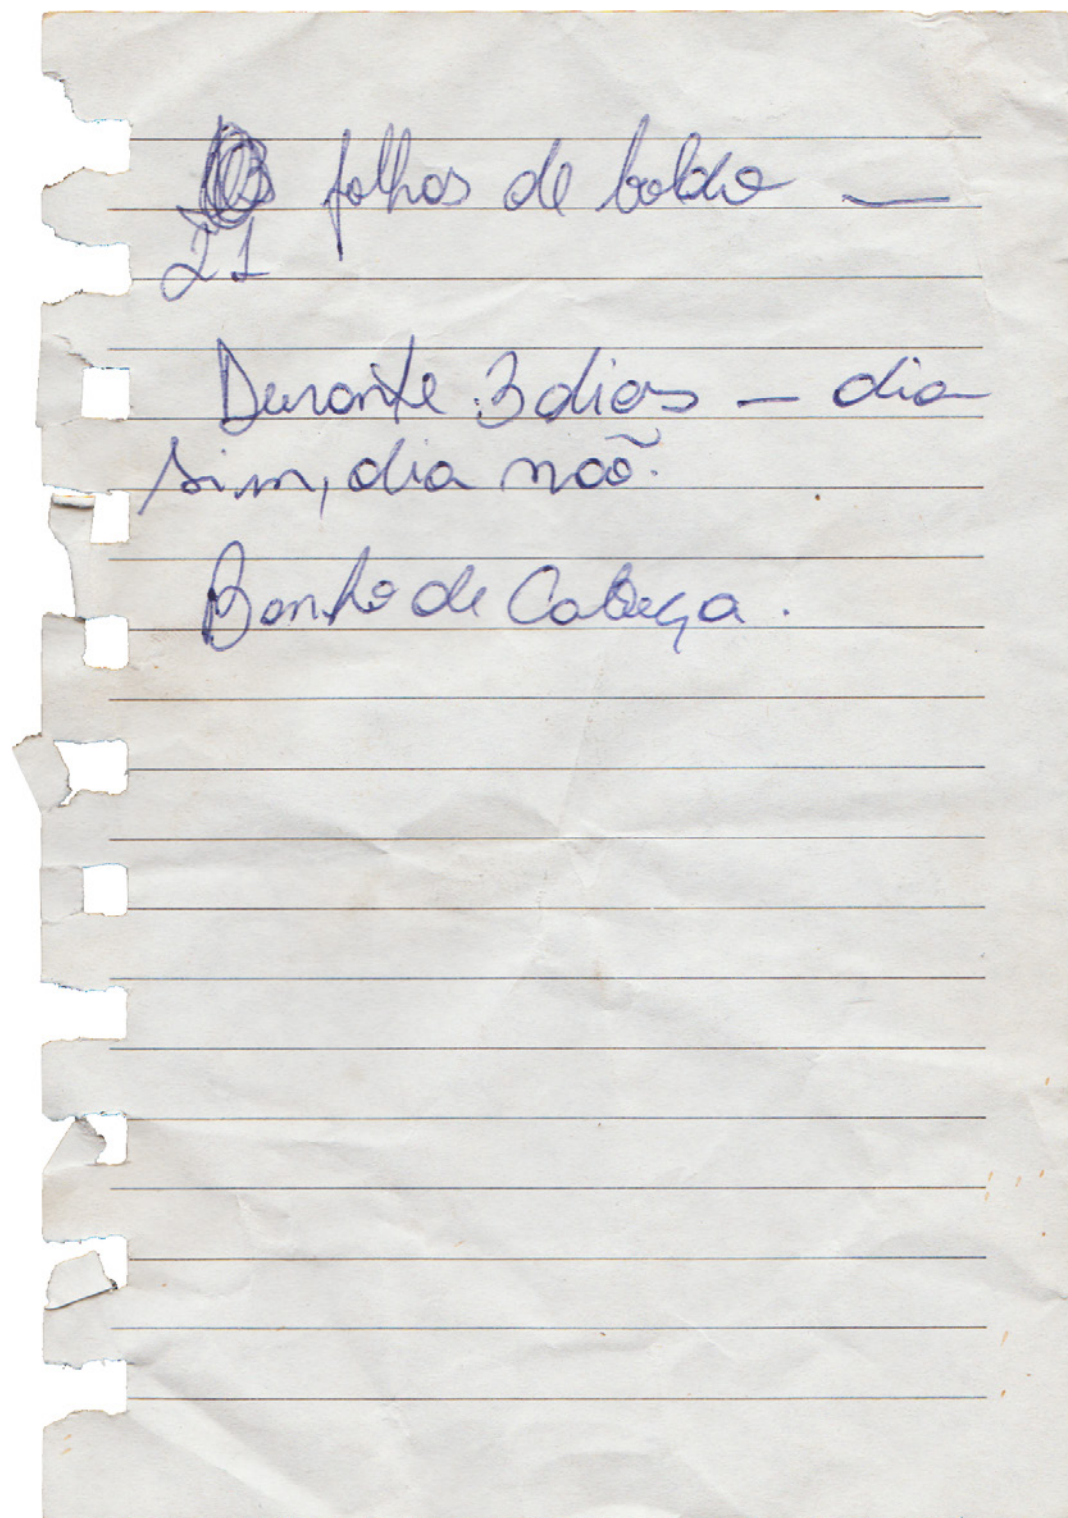 folhas de boldo —
21
Durante 3 dias — dia
sim, dia não.
Banho de Cabeça.